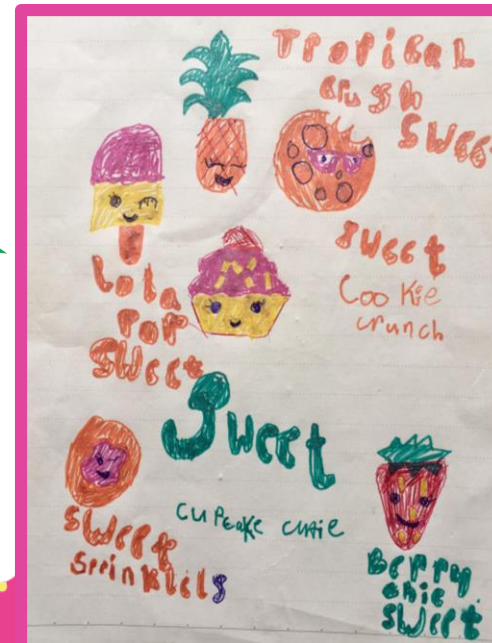 Tropical
crush
sweet
sweet
Cookie
crunch
Lola
pop
sweet
Sweet
cupcake cutie
sweet
sprinklels
Berry
chic
sweet